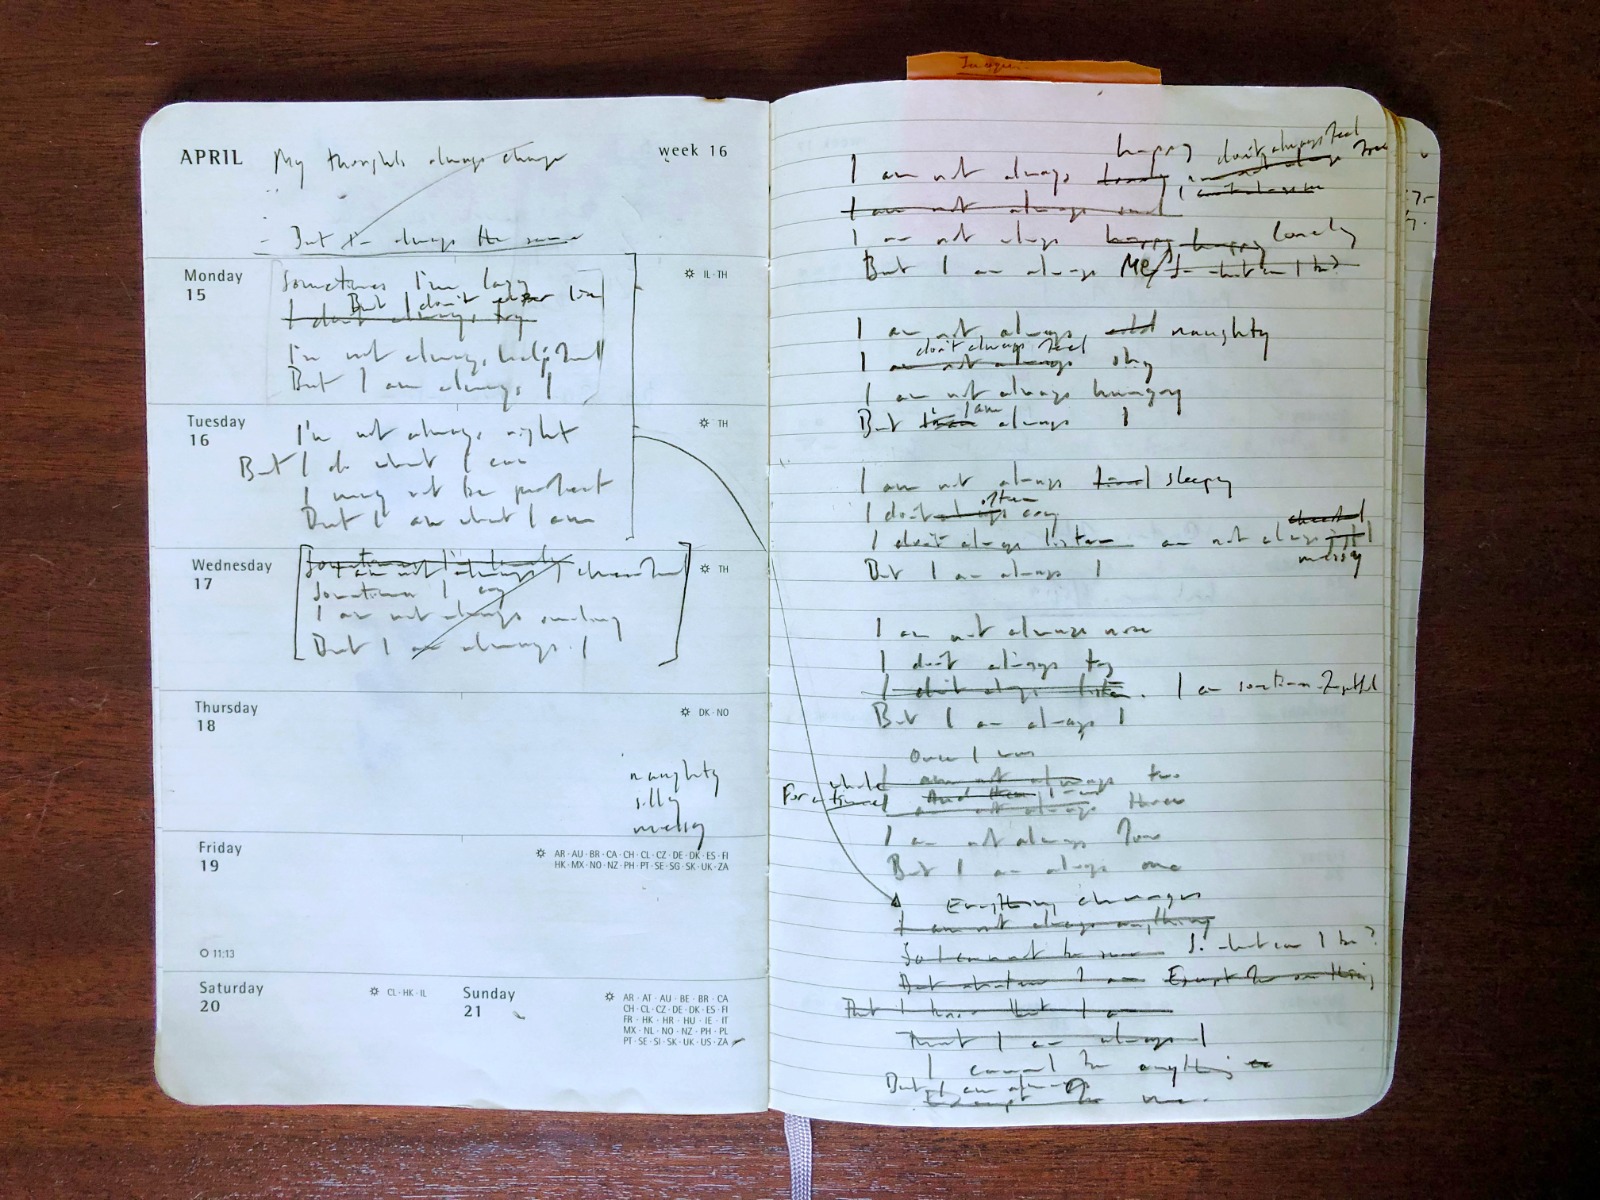 APRIL My thoughts always change week 16
But I'm always the same
Monday
15
IL·TH
Sometimes I'm lazy
But I don't
I don't always try
I'm not always helpful
But I am always I
Tuesday
16
TH
I'm not always right
But I do what I can
I may not be perfect
But I am what I am
Wednesday
17
TH
Sometimes I'm lonely
I am not always cheerful
Sometimes I cry
I am not always smiling
But I am always I
Thursday
18
DK·NO
naughty
silly
messy
Friday
19
AR·AU·BR·CA·CH·CL·CZ·DE·DK·ES·FI
HK·MX·NO·NZ·PH·PT·SE·SG·SK·UK·ZA
11:13
Saturday
20
CL·HK·IL
Sunday
21
AR·AT·AU·BE·BR·CA
CH·CL·CZ·DE·DK·ES·FI
FR·HK·HR·HU·IE·IT
MX·NL·NO·NZ·PH·PL
PT·SE·SI·SK·UK·US·ZA
happy don't always feel
I am not always
I am not always sad
I am not always happy hungry lonely
But I am always Me
I am not always naughty
don't always feel
I am not always shy
I am not always hungry
I am
But always I
I am not always tired sleepy
often
I don't always cry
cheerful
I don't always listen am not always
messy
But I am always I
I am not always
I don't always try
I don't always listen. I am sometimes
But I am always I
Once I was
I am not always two
And then I
I am not always three
I am not always four
But I am always one
Everything changes
I am not always anything
So I cannot be So what can I be?
But I am Except for one thing
But I know that I am
That I am always I
I cannot be anything
But I am always
Except for me.